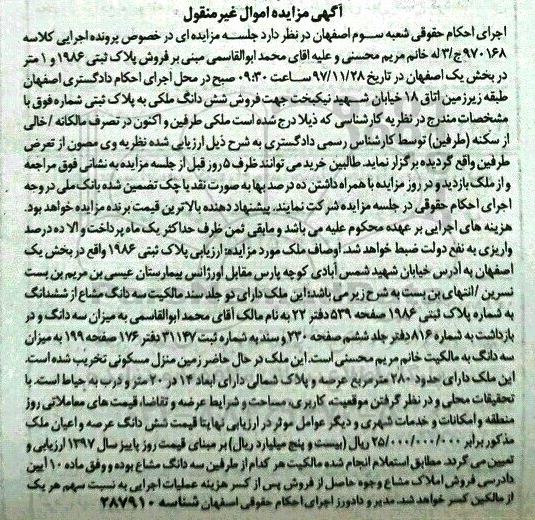 آگهی مزایده اموال غیر منقول
اجرای احکام حقوقی شعبه سوم اصفهان در نظر دارد جلسه مزایده ای در خصوص پرونده اجرایی کلاسه
۹۷۰۱۶۸ج/۳ له خانم مریم محسنی و علیه اقای محمد ابوالقاسمی مبنی بر فروش پلاک ثبتی ۱۹۸۶ و ۱ متر
در بخش یک اصفهان در تاریخ ۹۷/۱۱/۲۸ ساعت ۰۹:۳۰ صبح در محل اجرای احکام دادگستری اصفهان
طبقه زیرزمین اتاق ۱۸ خیابان شهید نیکبخت جهت فروش شش دانگ ملکی به پلاک ثبتی شماره فوق با
مشخصات مندرج در نظریه کارشناسی که ذیلا درج شده است ملکی طرفین و اکنون در تصرف مالکانه /خالی
از سکنه (طرفین) توسط کارشناس رسمی دادگستری به شرح ذیل ارزیابی شده نظریه وی مصون از تعرض
طرفین واقع گردیده برگزار نماید. طالبین خرید می توانند ظرف ۵ روز قبل از جلسه مزایده به نشانی فوق مراجعه
و از ملک بازدید و در روز مزایده با همراه داشتن ده درصد بها به صورت نقد یا چک تضمین شده بانک ملی در وجه
اجرای احکام حقوقی در جلسه مزایده شرکت نمایند. پیشنهاد دهنده بالاترین قیمت برنده مزایده خواهد بود.
هزینه های اجرایی بر عهده محکوم علیه می باشد و مابقی ثمن ظرف حداکثر یک ماه پرداخت و الا ده درصد
واریزی به نفع دولت ضبط خواهد شد. اوصاف ملک مورد مزایده: ارزیابی پلاک ثبتی ۱۹۸۶ واقع در بخش یک
اصفهان به آدرس خیابان شهید شمس آبادی کوچه پارس مقابل اورژانس بیمارستان عیسی بن مریم بن بست
نسرین /انتهای بن بست به شرح زیر می باشد: این ملک دارای دو جلد سند مالکیت سه دانگ مشاع از ششدانگ
به شماره پلاک ثبتی ۱۹۸۶ صفحه ۵۳۹ دفتر ۲۲ به نام مالک آقای محمد ابوالقاسمی به میزان سه دانگ و در
بازداشت به شماره ۸۱۶ دفتر جلد ششم صفحه ۲۳۰ و سند به شماره ثبت ۳۱۱۴۷ دفتر ۱۷۶ صفحه ۱۹۹ به میزان
سه دانگ به مالکیت خانم مریم محسنی است. این ملک در حال حاضر زمین منزل مسکونی تخریب شده است.
این ملک دارای حدود ۲۸۰ مترمربع عرصه و پلاک شمالی دارای ابعاد ۱۴ در ۲۰ متر و درب به حیاط است. با
تحقیقات محلی و در نظر گرفتن موقعیت، کاربری، مساحت و شرایط عرصه و تقاضا، قیمت های معاملاتی روز
منطقه و امکانات و خدمات شهری و دیگر عوامل موثر در ارزیابی نهایتا قیمت شش دانگ عرصه و اعیان ملک
مذکور برابر ۲۵/۰۰۰/۰۰۰/۰۰۰ ریال (بیست و پنج میلیارد ریال) بر مبنای قیمت روز پاییز سال ۱۳۹۷ ارزیابی و
تعیین می گردد. مطابق استعلام انجام شده مالکیت هر کدام از طرفین سه دانگ مشاع بوده و وفق ماده ۱۰ آیین
دادرسی فروش املاک مشاع وجوه حاصل از فروش پس از کسر هزینه عملیات اجرایی به نسبت سهم هر یک
از مالکین کسر خواهد شد. مدیر و دادورز اجرای احکام حقوقی اصفهان شناسه ۳۸۷۹۱۰